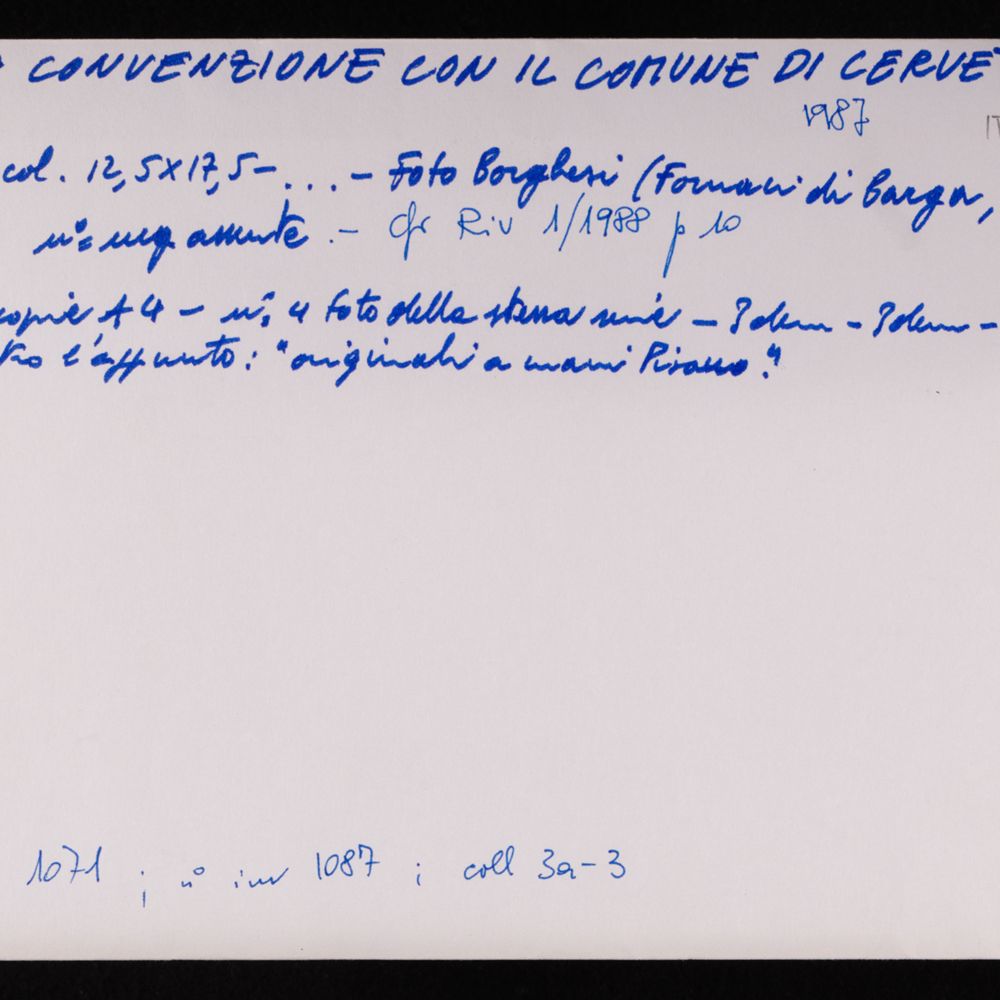 CONVENZIONE CON IL COMUNE DI CERVET
1987
IT
col. 12,5x17,5 - ... - Foto Borghesi (Fornaci di Barga,
n° neg. assente. - Cfr Riv 1/1988 p 10
copie A4 - n° 4 foto della stessa serie - Idem - Idem -
l'appunto: "originali a mani Pisano."
1071 ; n° inv 1087 ; coll 3a-3